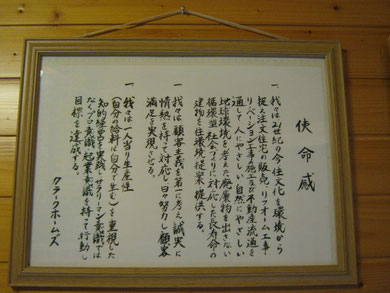 使命感
一、我々は21世紀の今住文化を環境から
捉え注文住宅の販売、リフォーム工事
リノベーション工事施工及不動産流通を
通して人にやさしい自然にやさしい
地球環境を考えた廃棄物を出さない
循環型社会づくりに対応した長寿命の
建物を住環境提案提供する。
一、我々は顧客主義を第一に考え誠実に
情熱を持って対応し日々努力し顧客
満足を実現させる。
一、我々は一人当り生産性
(自分の給料は自分で生む)を重視した
知的経営を実践しサラリーマン意識では
なくプロ意識、起業意識を持って行動し
目標を達成する。
クラークホームズ